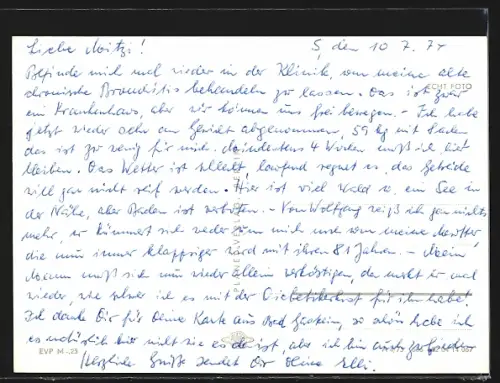 Liebe Mitzi! S, den 10.7.74
Befinde mich mal wieder in der Klinik, um meine alte
chronische Bronchitis behandeln zu lassen. Das ist zwar
ECHT FOTO
ein Krankenhaus, aber wir können uns frei bewegen. - Ich habe
jetzt wieder sehr an Gewicht abgenommen, 59 kg mit Sachen
das ist zu wenig für mich. Mindestens 4 Wochen muß ich hier
bleiben. Das Wetter ist schlecht, laufend regnet es, das Getreide
will gar nicht reif werden. Hier ist viel Wald u. ein See in
der Nähe, aber Baden ist verboten. - Von Wolfgang weiß ich gar nichts
mehr, er kümmert sich weder um mich noch um meine Mutter,
die nun immer klappriger wird mit ihren 81 Jahren. - Mein
Mann muß sich nun wieder allein verköstigen, da merkt er mal
wieder, wie schwer ich es mit der Diabetikerkost für ihn habe!
Ich danke Dir für Deine Karte aus Bad Gastein, so schön habe ich
es natürlich hier nicht wie es dort ist, aber ich bin auch zufrieden
EVP M -,25
Herzliche Grüße sendet Dir Deine Elli.